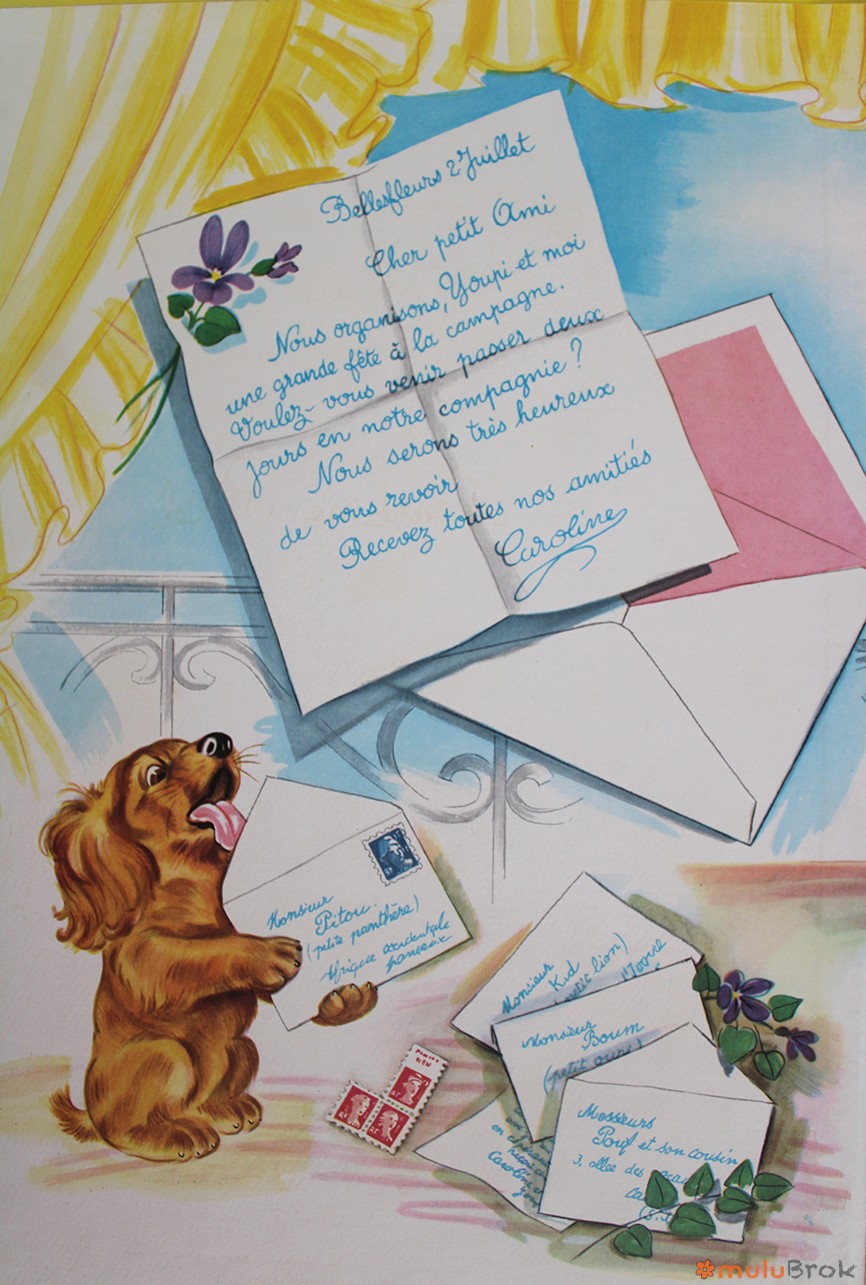 Bellesfleurs 2 Juillet
Cher petit Ami
Nous organisons, Youpi et moi
une grande fête à la campagne.
Voulez-vous venir passer deux
jours en notre compagnie ?
Nous serons très heureux
de vous revoir
Recevez toutes nos amitiés
Caroline
Monsieur
Pitou.
(petite panthère)
Afrique occidentale
française
Monsieur
Kid
(petit lion)
Monsieur
Boum
(petit ours)
Messieurs
Pouf et son cousin
3, allée des
Caroline
muluBrok